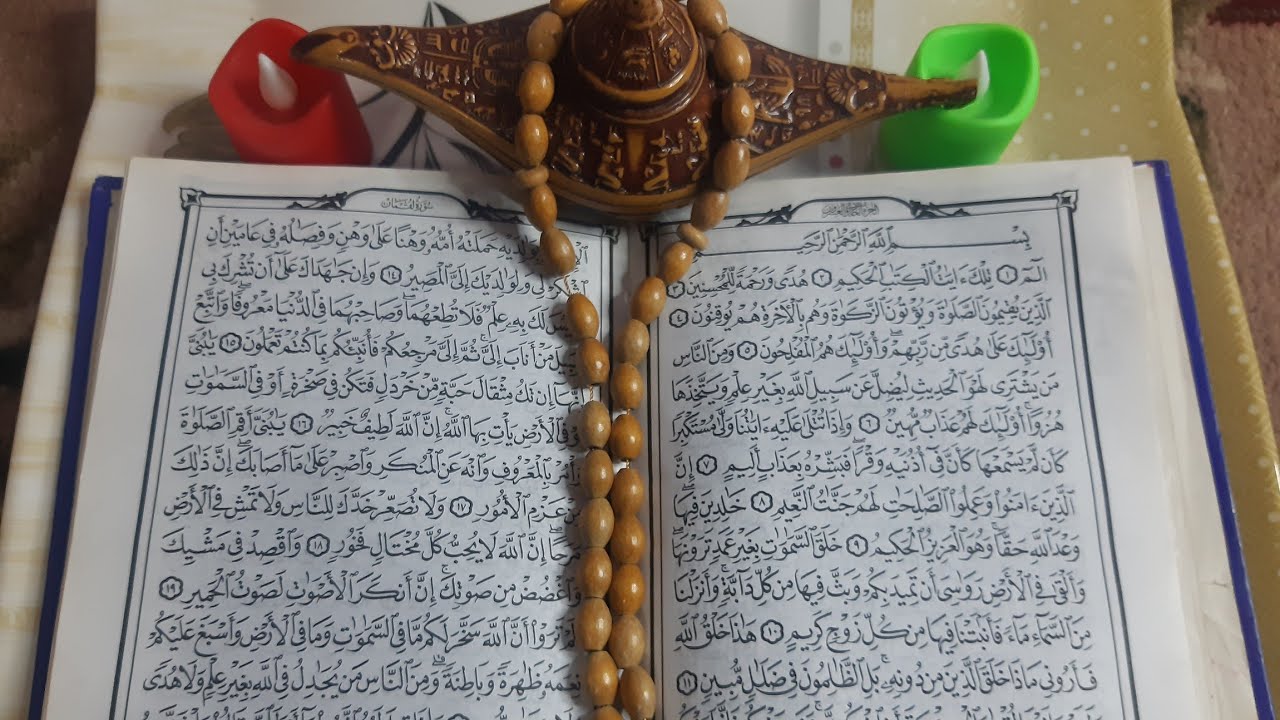 بِسْمِ اللَّهِ الرَّحْمَٰنِ الرَّحِيمِ
الٓمٓ ١ تِلْكَ ءَايَٰتُ ٱلْكِتَٰبِ ٱلْحَكِيمِ ٢ هُدًى وَرَحْمَةً لِّلْمُحْسِنِينَ ٣
ٱلَّذِينَ يُقِيمُونَ ٱلصَّلَوٰةَ وَيُؤْتُونَ ٱلزَّكَوٰةَ وَهُم بِٱلْءَاخِرَةِ هُمْ يُوقِنُونَ ٤
أُوْلَٰٓئِكَ عَلَىٰ هُدًى مِّن رَّبِّهِمْ ۖ وَأُوْلَٰٓئِكَ هُمُ ٱلْمُفْلِحُونَ ٥ وَمِنَ ٱلنَّاسِ
مَن يَشْتَرِى لَهْوَ ٱلْحَدِيثِ لِيُضِلَّ عَن سَبِيلِ ٱللَّهِ بِغَيْرِ عِلْمٍ وَيَتَّخِذَهَا
هُزُوًا ۚ أُوْلَٰٓئِكَ لَهُمْ عَذَابٌ مُّهِينٌ ٦ وَإِذَا تُتْلَىٰ عَلَيْهِ ءَايَٰتُنَا وَلَّىٰ مُسْتَكْبِرًا
كَأَن لَّمْ يَسْمَعْهَا كَأَنَّ فِىٓ أُذُنَيْهِ وَقْرًا ۖ فَبَشِّرْهُ بِعَذَابٍ أَلِيمٍ ٧ إِنَّ
ٱلَّذِينَ ءَامَنُوا۟ وَعَمِلُوا۟ ٱلصَّٰلِحَٰتِ لَهُمْ جَنَّٰتُ ٱلنَّعِيمِ ٨ خَٰلِدِينَ فِيهَا ۖ
وَعْدَ ٱللَّهِ حَقًّا ۚ وَهُوَ ٱلْعَزِيزُ ٱلْحَكِيمُ ٩ خَلَقَ ٱلسَّمَٰوَٰتِ بِغَيْرِ عَمَدٍ تَرَوْنَهَا ۖ
وَأَلْقَىٰ فِى ٱلْأَرْضِ رَوَٰسِىَ أَن تَمِيدَ بِكُمْ وَبَثَّ فِيهَا مِن كُلِّ دَآبَّةٍ ۚ وَأَنزَلْنَا
مِنَ ٱلسَّمَآءِ مَآءً فَأَنۢبَتْنَا فِيهَا مِن كُلِّ زَوْجٍ كَرِيمٍ ١٠ هَٰذَا خَلْقُ ٱللَّهِ
فَأَرُونِى مَاذَا خَلَقَ ٱلَّذِينَ مِن دُونِهِۦ ۚ بَلِ ٱلظَّٰلِمُونَ فِى ضَلَٰلٍ مُّبِينٍ ١١
سُورَةُ لُقْمَانَ
بِوَٰلِدَيْهِ حَمَلَتْهُ أُمُّهُۥ وَهْنًا عَلَىٰ وَهْنٍ وَفِصَٰلُهُۥ فِى عَامَيْنِ أَنِ
ٱشْكُرْ لِى وَلِوَٰلِدَيْكَ إِلَىَّ ٱلْمَصِيرُ ١٤ وَإِن جَٰهَدَاكَ عَلَىٰٓ أَن تُشْرِكَ بِى
لَيْسَ لَكَ بِهِۦ عِلْمٌ فَلَا تُطِعْهُمَا ۖ وَصَاحِبْهُمَا فِى ٱلدُّنْيَا مَعْرُوفًا ۖ وَٱتَّبِعْ
سَبِيلَ مَنْ أَنَابَ إِلَىَّ ۚ ثُمَّ إِلَىَّ مَرْجِعُكُمْ فَأُنَبِّئُكُم بِمَا كُنتُمْ تَعْمَلُونَ ١٥ يَٰبُنَىَّ
إِنَّهَآ إِن تَكُ مِثْقَالَ حَبَّةٍ مِّنْ خَرْدَلٍ فَتَكُن فِى صَخْرَةٍ أَوْ فِى ٱلسَّمَٰوَٰتِ
أَوْ فِى ٱلْأَرْضِ يَأْتِ بِهَا ٱللَّهُ ۚ إِنَّ ٱللَّهَ لَطِيفٌ خَبِيرٌ ١٦ يَٰبُنَىَّ أَقِمِ ٱلصَّلَوٰةَ
وَأْمُرْ بِٱلْمَعْرُوفِ وَٱنْهَ عَنِ ٱلْمُنكَرِ وَٱصْبِرْ عَلَىٰ مَآ أَصَابَكَ ۖ إِنَّ ذَٰلِكَ
مِنْ عَزْمِ ٱلْأُمُورِ ١٧ وَلَا تُصَعِّرْ خَدَّكَ لِلنَّاسِ وَلَا تَمْشِ فِى ٱلْأَرْضِ
مَرَحًا ۖ إِنَّ ٱللَّهَ لَا يُحِبُّ كُلَّ مُخْتَالٍ فَخُورٍ ١٨ وَٱقْصِدْ فِى مَشْيِكَ
وَٱغْضُضْ مِن صَوْتِكَ ۚ إِنَّ أَنكَرَ ٱلْأَصْوَٰتِ لَصَوْتُ ٱلْحَمِيرِ ١٩
أَلَمْ تَرَوْا۟ أَنَّ ٱللَّهَ سَخَّرَ لَكُم مَّا فِى ٱلسَّمَٰوَٰتِ وَمَا فِى ٱلْأَرْضِ وَأَسْبَغَ عَلَيْكُمْ
نِعَمَهُۥ ظَٰهِرَةً وَبَاطِنَةً ۗ وَمِنَ ٱلنَّاسِ مَن يُجَٰدِلُ فِى ٱللَّهِ بِغَيْرِ عِلْمٍ وَلَا هُدًى